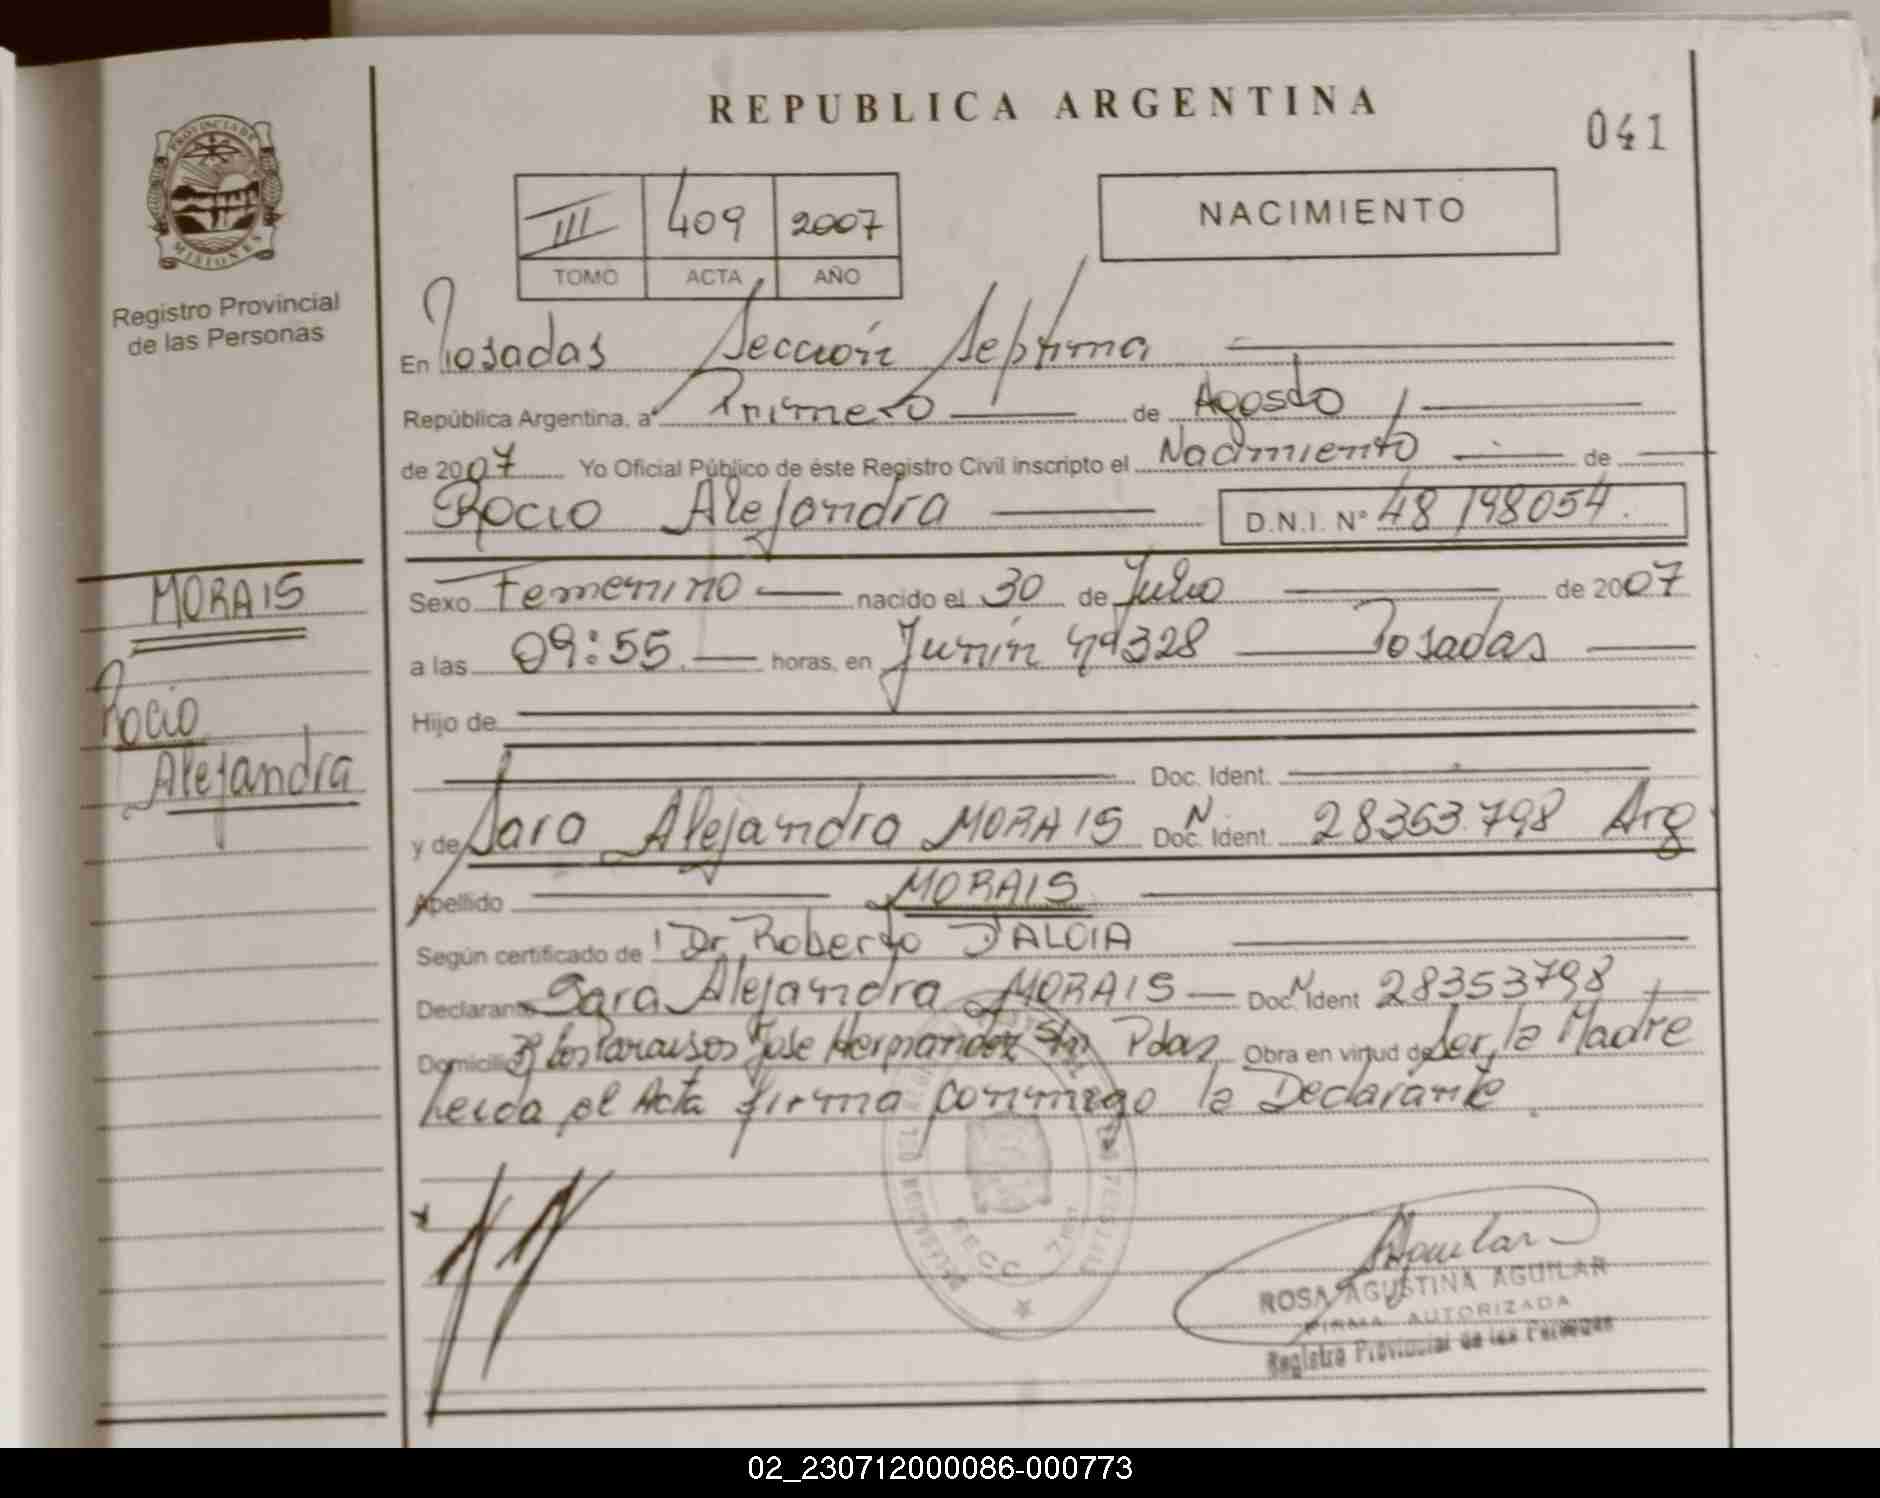 REPUBLICA ARGENTINA
041
PROVINCIA DE
MISIONES
Registro Provincial
de las Personas
III 409 2007
TOMO ACTA AÑO
NACIMIENTO
En Posadas Sección Septima
República Argentina, a Primero de Agosto
de 2007 Yo Oficial Público de éste Registro Civil inscripto el Nacimiento de
Rocio Alejandra D.N.I. N° 48198054.
MORAIS
Rocio
Alejandra
Sexo Femenino nacido el 30 de Julio de 2007
a las 09:55 horas, en Junín Nº 328 Posadas
Hijo de
Doc. Ident.
y de Sara Alejandra MORAIS Doc. N Ident. 28353.798 Arg
Apellido MORAIS
Según certificado de Dr. Roberto D'ALOIA
Declarante Sara Alejandra MORAIS Doc. N Ident 28353798
Domicilio Bº Los Paraisos Jose Hernandez S/n Pdas Obra en virtud de Ser la Madre
Leida el Acta firma conmigo la Declarante.
SECC 7
Aguilar
ROSA AGUSTINA AGUILAR
FIRMA AUTORIZADA
Registro Provincial de las Personas
02_230712000086-000773